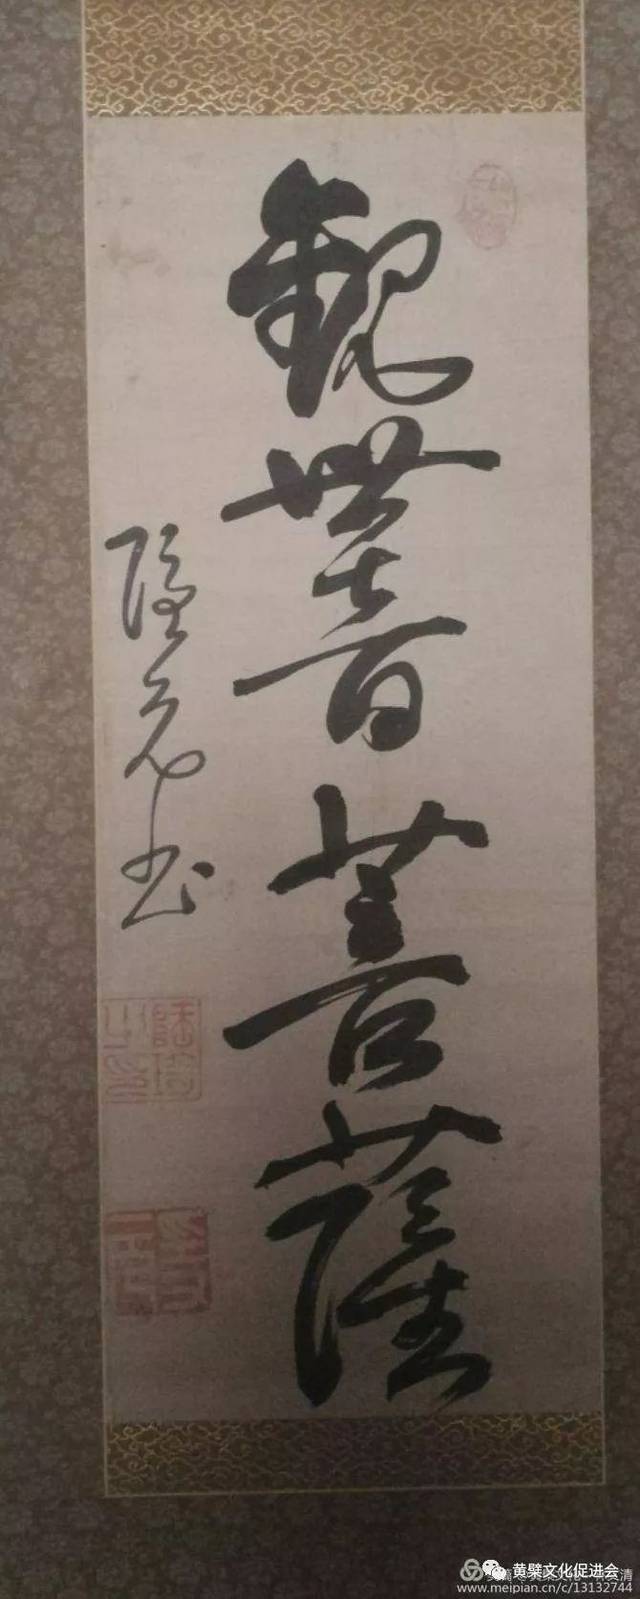 觀世音菩薩
隱元书
黄檗文化促进会
www.meipian.cn/c/13132744